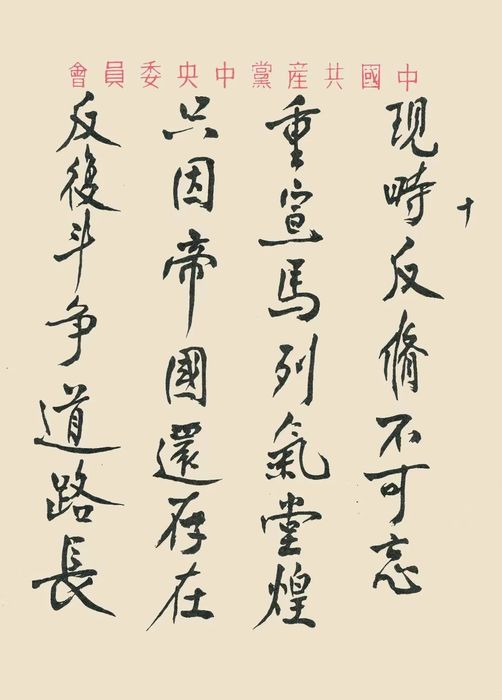 中國共産黨中央委員會
十
現時反脩不可忘
重宣馬列氣堂煌
只因帝國還存在
反復斗争道路長